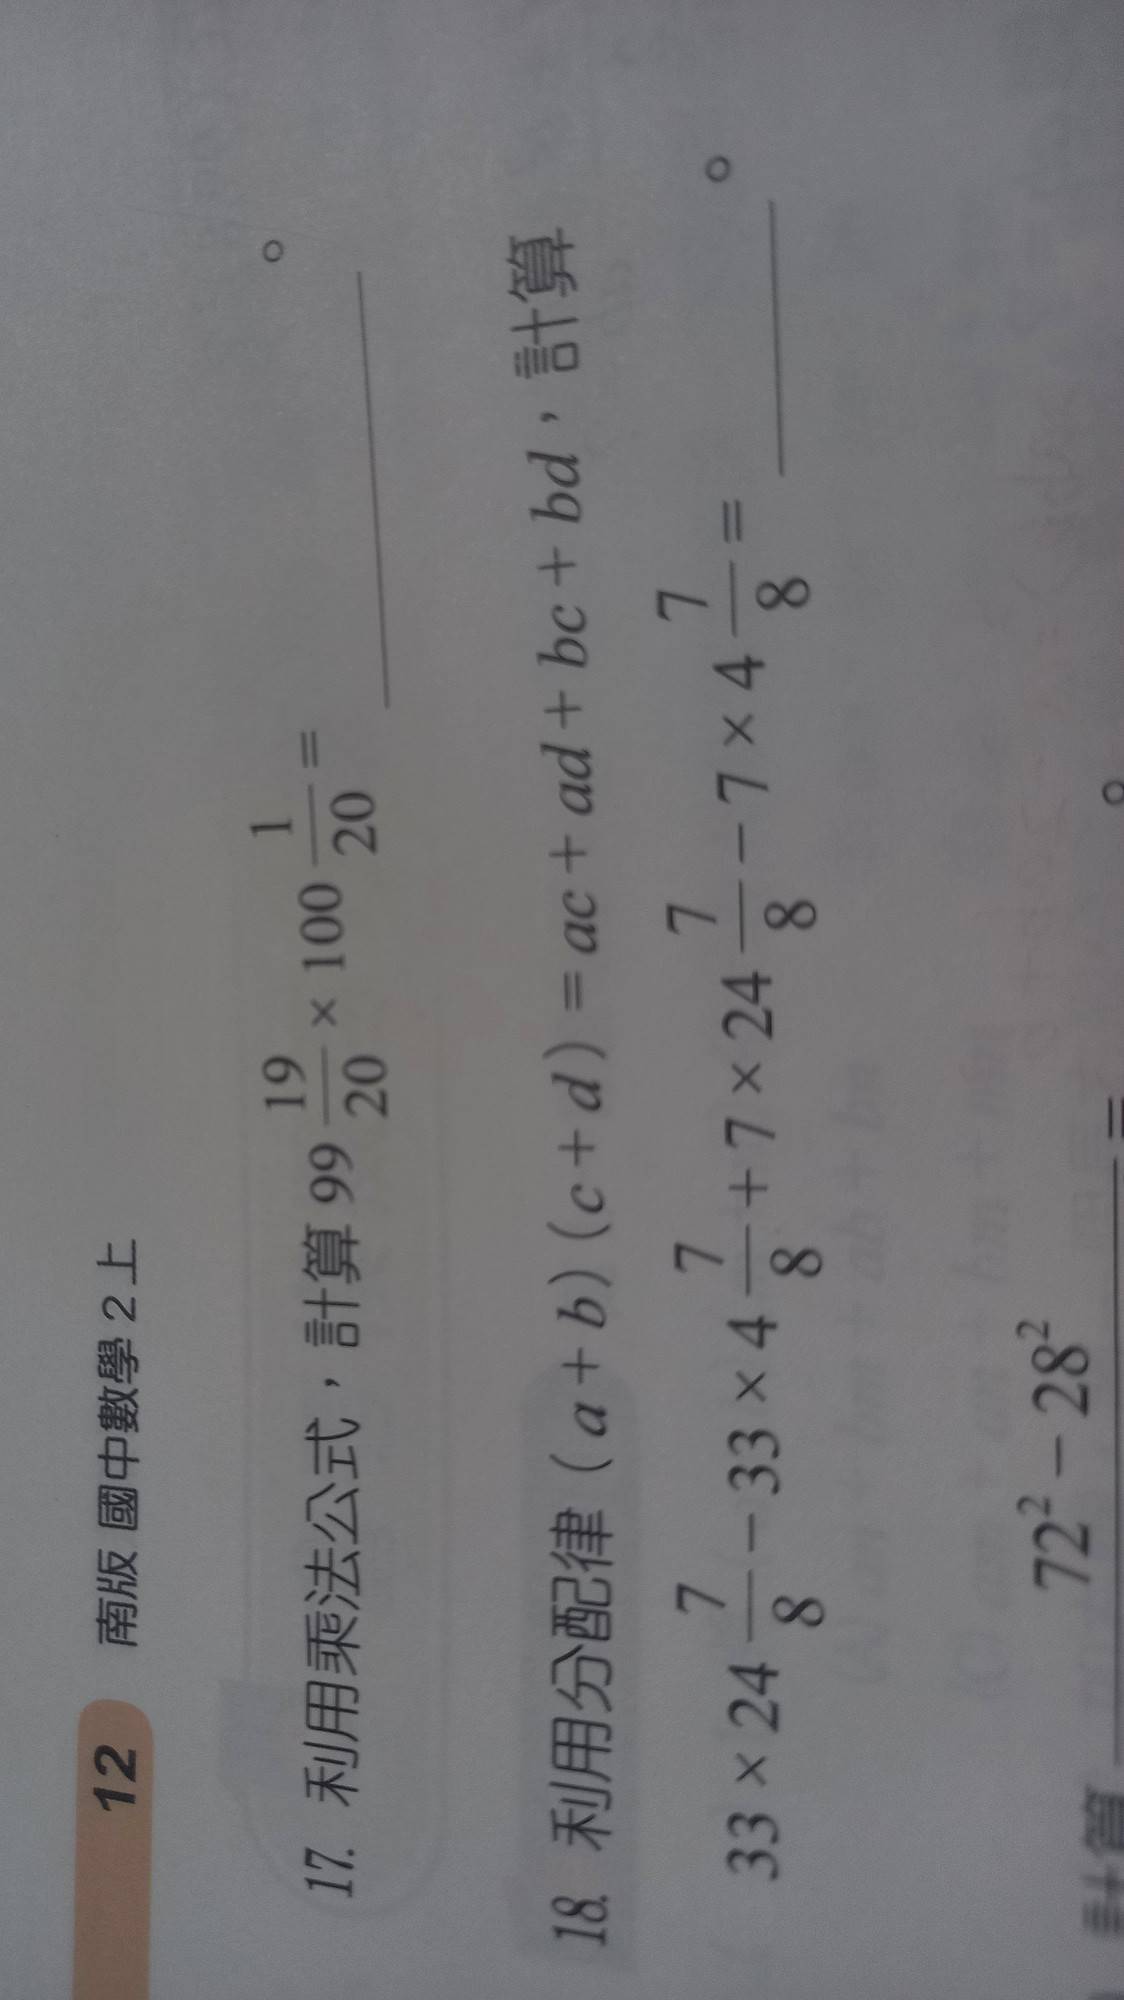 12 南版 國中數學2上
17. 利用乘法公式，計算 99 19/20 × 100 1/20 = ________。
18. 利用分配律 (a + b) (c + d) = ac + ad + bc + bd，計算
33 × 24 7/8 − 33 × 4 7/8 + 7 × 24 7/8 − 7 × 4 7/8 = ________。
72² − 28²
計算 ________ = 。